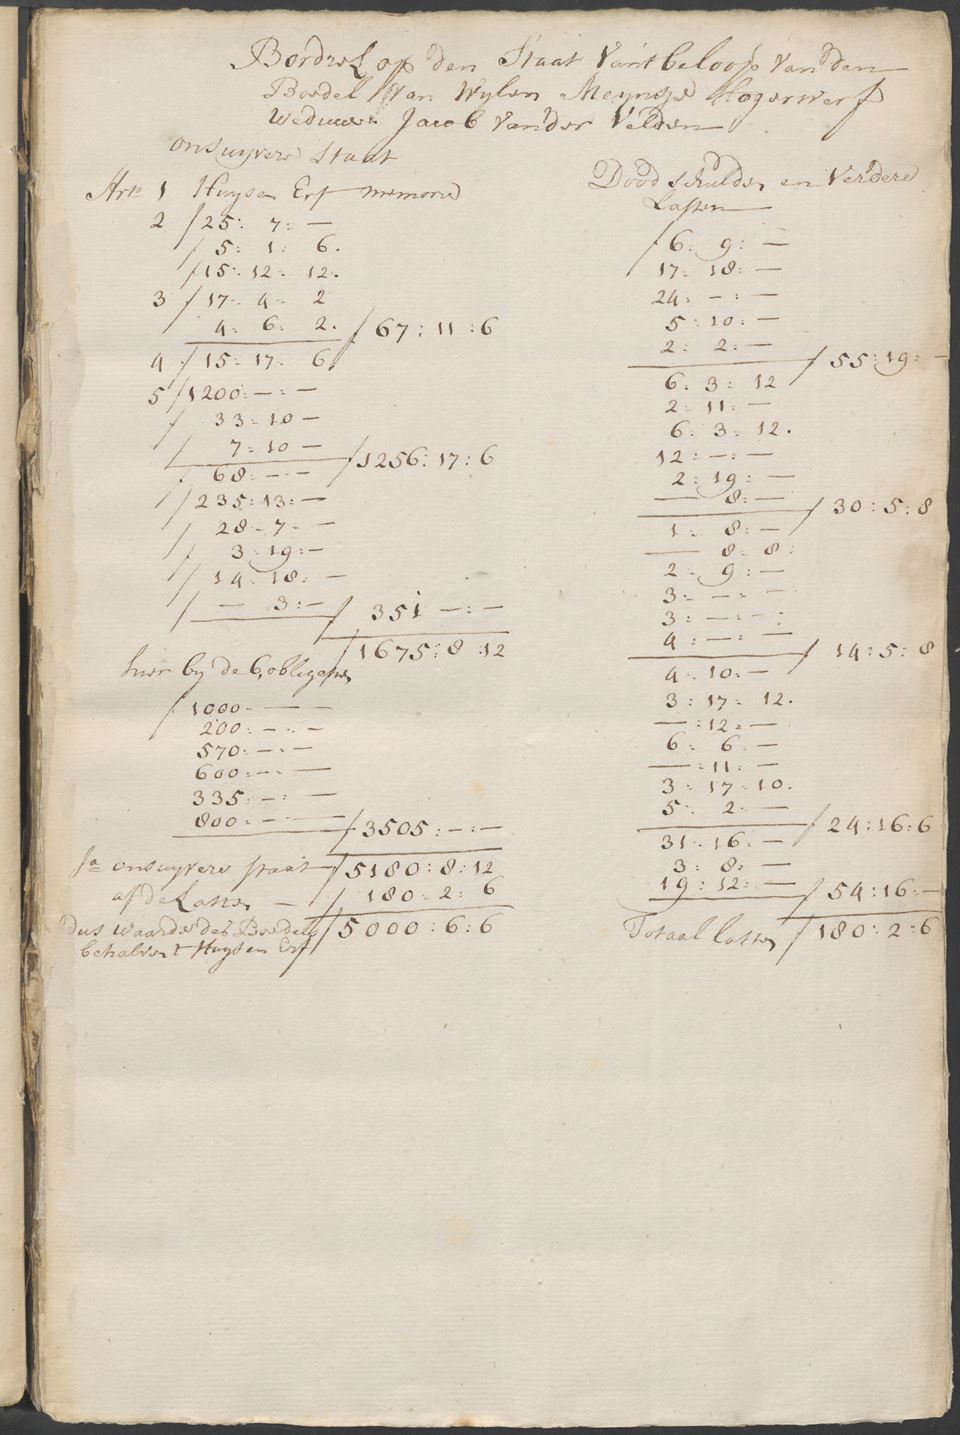 Bordrel op den Staat Van't beloop Van den
Boedel Van Wylen Meynsje Hogerwerf
Weduwe Jacob Vander Velden
onsuyvere Staat
Arte 1 Huys en Erf memorie
2 / 25: 7: —
/ 5: 1: 6.
/ 15: 12: 12.
3 / 17: 4: 2
4: 6: 2. / 67: 11: 6
4 / 15: 17: 6
5 / 1200: — : —
/ 33: 10 —
/ 7: 10 — / 1256: 17: 6
/ 68: — : —
/ 235: 13: —
/ 28: 7: —
/ 3: 19: —
/ 14: 18: —
/ — 3: — / 351 — : —
/ 1675: 8: 12
hier by de 6 obligatien
/ 1000: — —
200: — : —
570: — : —
600: — : —
335: — : —
800: — : — / 3505: — : —
sa onsuyvere staat / 5180: 8: 12
af de Lasten — / 180: 2: 6
dus waarde des Boedels / 5000: 6: 6
behalven 't Huys en Erf
Dood schulden en Verdere
Lasten
/ 6: 9: —
17: 18: —
24: — : —
5: 10: —
2: 2: — / 55: 19: —
6: 3: 12
2: 11: —
6: 3: 12.
12: — : —
2: 19: —
— 8: — / 30: 5: 8
1: 8: —
— 8: 8:
2: 9: —
3: — : —
3: — : —
4: — : — / 14: 5: 8
4: 10: —
3: 17: 12.
— : 12: —
6: 6: —
— : 11: —
3: 17: 10.
5: 2: — / 24: 16: 6
31: 16: —
3: 8: —
19: 12: — / 54: 16: —
Totaal lasten / 180: 2: 6